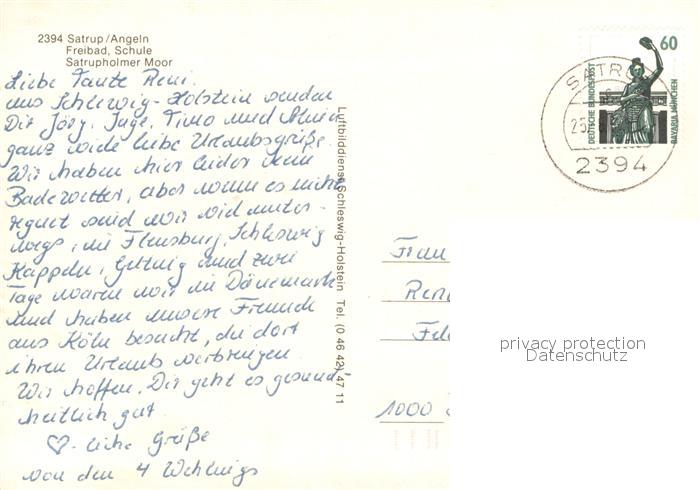 2394 Satrup/Angeln
Freibad, Schule
Satrupholmer Moor
Liebe Tante Reni.
aus Schleswig-Holstein senden
Dir Jörg, Inge, Timo und
ganz viele liebe Urlaubsgrüße.
Wir haben hier leider kein
Badewetter, aber wenn es nicht
regnet sind wir viel unter-
wegs, in Flensburg, Schleswig
Kappeln, und zwei
Tage waren wir in Dänemark
und haben unsere Freunde
aus Köln besucht, die dort
ihren Urlaub verbringen.
Wir hoffen, Dir geht es gesund-
heitlich gut
♡-liche Grüße
von den 4
Luftbilddienst Schleswig-Holstein Tel. (0 46 42) 47 11
60
DEUTSCHE BUNDESPOST
BAVARIA MÜNCHEN
SATRUP
25.
2394
Frau
Ren
Fel
1000
privacy protection
Datenschutz